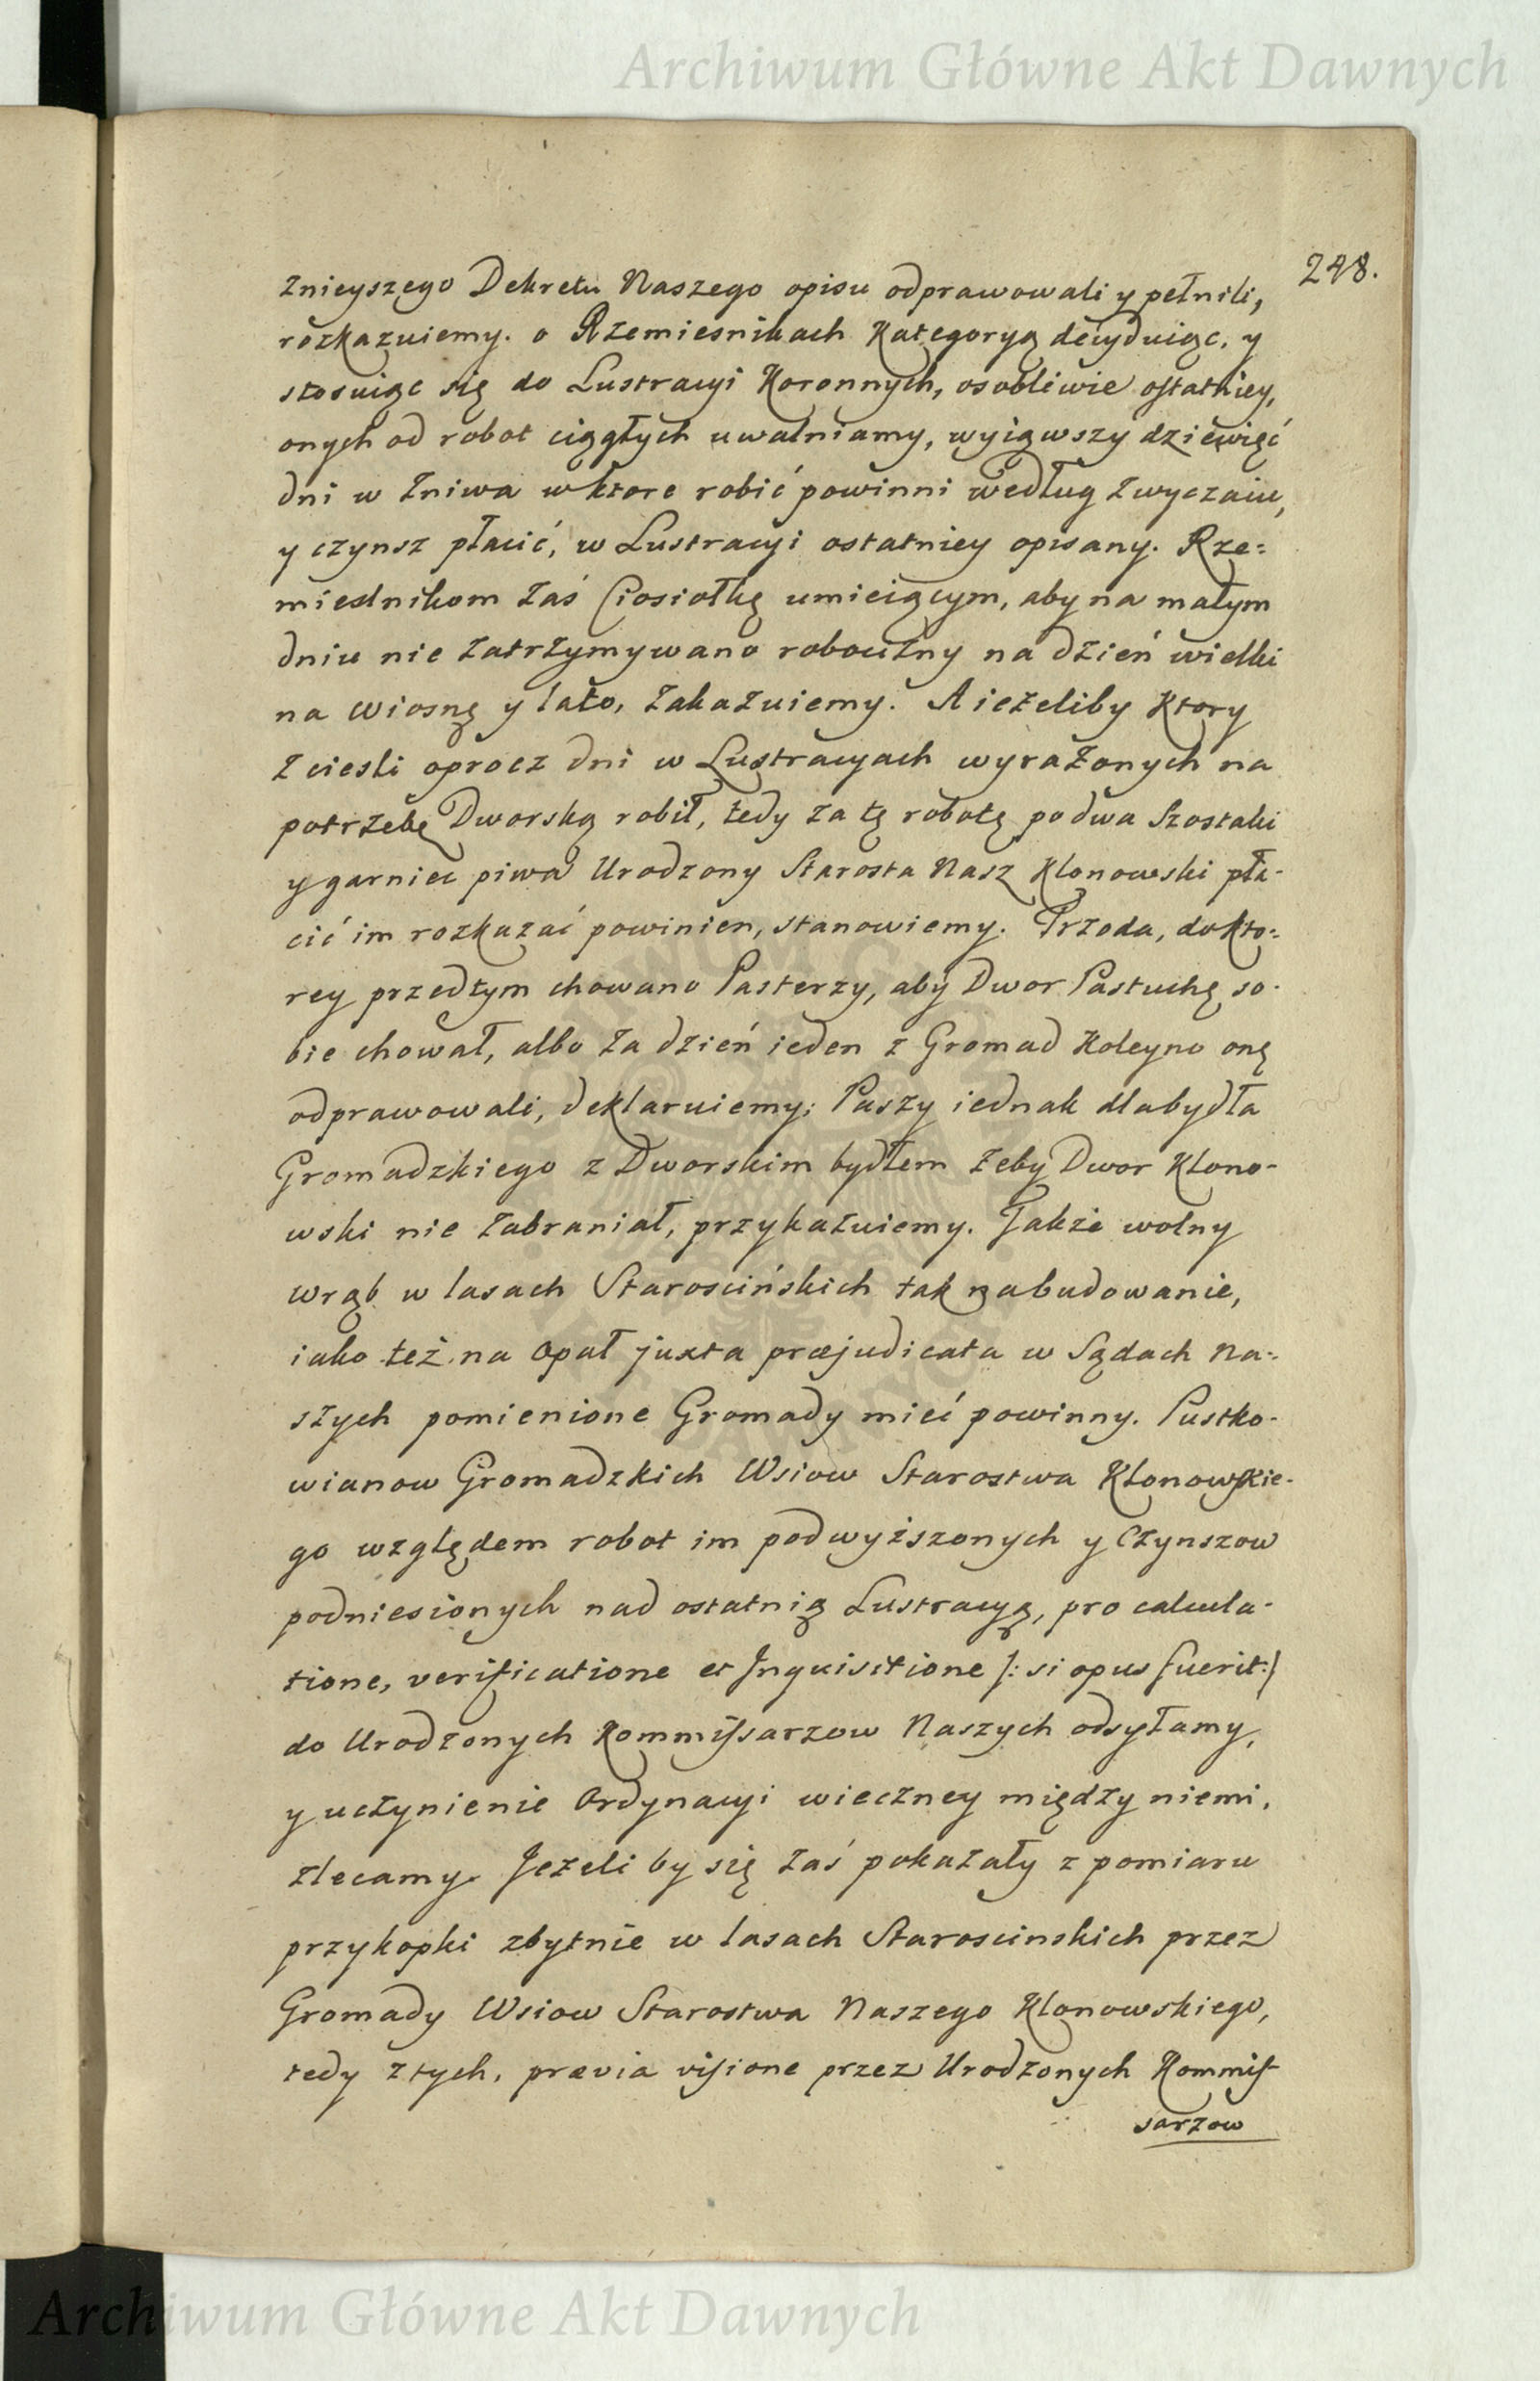 Archiwum Główne Akt Dawnych
248.
znieyszego Dekretu Naszego opisu odprawowali y pełnili,
rozkazuiemy. o Rzemiesnikach Kategoryą decyduiąc, y
stosuiąc się do Lustracyi Koronnych, osobliwie ostatniey,
onych od robot ciągłych uwalniamy, wyiąwszy dziewięć
dni w Żniwa w ktore robić powinni według Zwyczaiu,
y czynsz płacić, w Lustracyi ostatniey opisany. Rze=
mieslnikom Zaś Ciosiołkę umieiącym, aby na małym
dniu nie Zatrzymywano robocizny na dzień wielki
na wiosnę y lato, Zakazuiemy. A ieżeliby Ktory
Z ciesli oprocz dni w Lustracyach wyrażonych na
potrzebę Dworską robił, tedy za tę robotę po dwa Szostaki
y garniec piwa Urodzony Starosta Nasz Klonowski pła-
cić im rozkazać powinien, stanowiemy. Trzoda, do kto=
rey przedtym chowano Pasterzy, aby Dwor Pastuchę so-
bie chował, albo Za dzień ieden z Gromad Koleyno onę
odprawowali, deklaruiemy; Paszy iednak dla bydła
Gromadzkiego z Dworskim bydłem żeby Dwor Klono-
wski nie Zabraniał, przykazuiemy. Także wolny
wrąb w lasach Starościńskich tak na budowanie,
iako też na opał juxta præjudicata w Sądach Na=
szych pomienione Gromady mieć powinny. Pustko-
wianow Gromadzkich Wsiow Starostwa Klonowskie-
go względem robot im podwyższonych y Czynszow
podniesionych nad ostatnią Lustracyą, pro calcula-
tione, verificatione et Inquisitione /: si opus fuerit :/
do Urodzonych Kommissarzow Naszych odsyłamy,
y uczynienie Ordynacyi wieczney między niemi,
zlecamy. Jeżeli by się Zaś pokazały z pomiaru
przykopki zbytnie w lasach Staroscinskich przez
Gromady Wsiow Starostwa Naszego Klonowskiego,
tedy z tych, prævia visione przez Urodzonych Kommis-
sarzow
Archiwum Główne Akt Dawnych